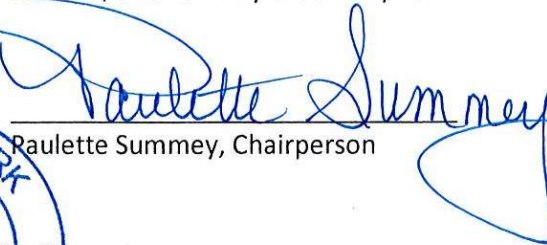 Paulette Summey
Paulette Summey, Chairperson
RK